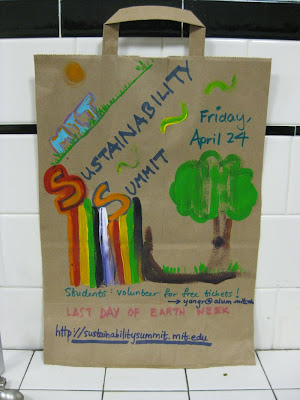 MIT
SUSTAINABILITY
SUMMIT
Friday,
April 24
Students: volunteer for free tickets!
→ yangr@alum.mit.edu
LAST DAY OF EARTH WEEK
http://sustainabilitysummit.mit.edu